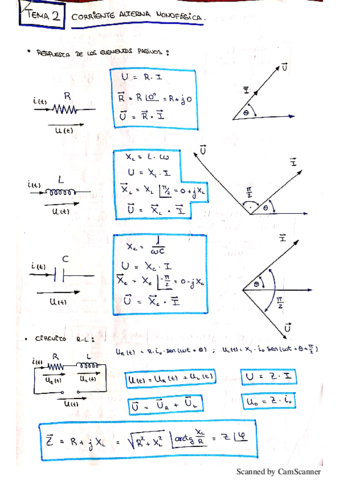 TEMA 2
CORRIENTE ALTERNA MONOFÁSICA.
• RESPUESTA DE LOS ELEMENTOS PASIVOS:
i(t) R
u(t)
U = R · I
R⃗ = R |0° = R + j0
U⃗ = R⃗ · I⃗
U⃗
I⃗
θ
i(t) L
u(t)
X_L = L · ω
U = X_L · I
X⃗_L = X_L |π/2 = 0 + jX_L
U⃗ = X⃗_L · I⃗
U⃗
I⃗
π/2
θ
i(t) C
u(t)
X_c = 1/ωC
U = X_c · I
X⃗_c = X_c |-π/2 = 0 - jX_c
U⃗ = X⃗_c · I⃗
I⃗
θ
π/2
U⃗
• CIRCUITO R-L:
i(t) R L
u_R(t) u_L(t)
u(t)
u_R(t) = R · i₀ · sen(ωt + θ) ; u_L(t) = X_L · i₀ sen(ωt + θ + π/2)
u(t) = u_R(t) + u_L(t)
U = Z · I
U⃗ = U⃗_R + U⃗_L
u₀ = Z · i₀
Z⃗ = R + jX_L = √R² + X_L² |arctg X_L/R = Z |φ
Scanned by CamScanner